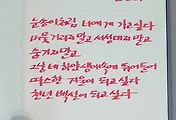 눈송이처럼 너에게 가고 싶다
머뭇거리지 말고 서성대지 말고
숨기지 말고
그냥 네 하얀 생애 속에 뛰어들어
따스한 겨울이 되고 싶다
천년 백설이 되고 싶다